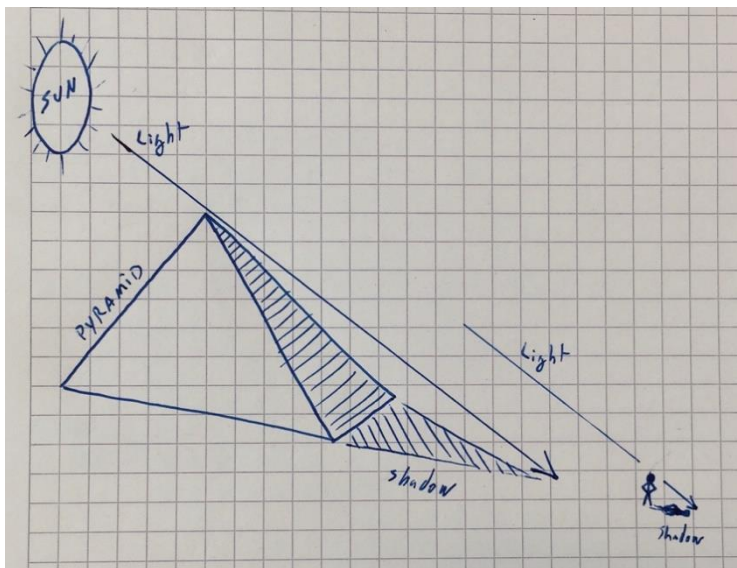 SUN
Light
PYRAMID
Light
Shadow
Shadow